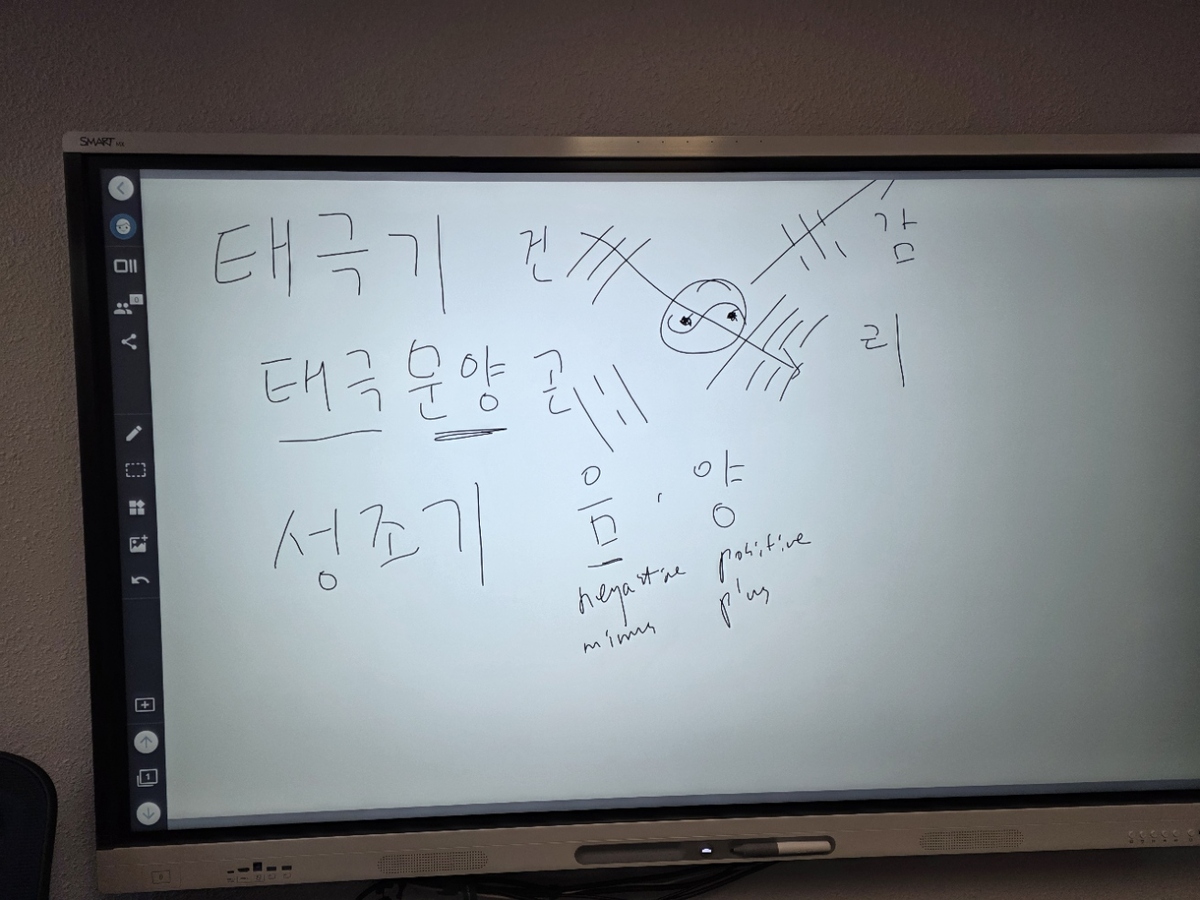 SMART
태극기 건 감
리
태극문양 곤
성조기 음, 양
negative positive
minus plus